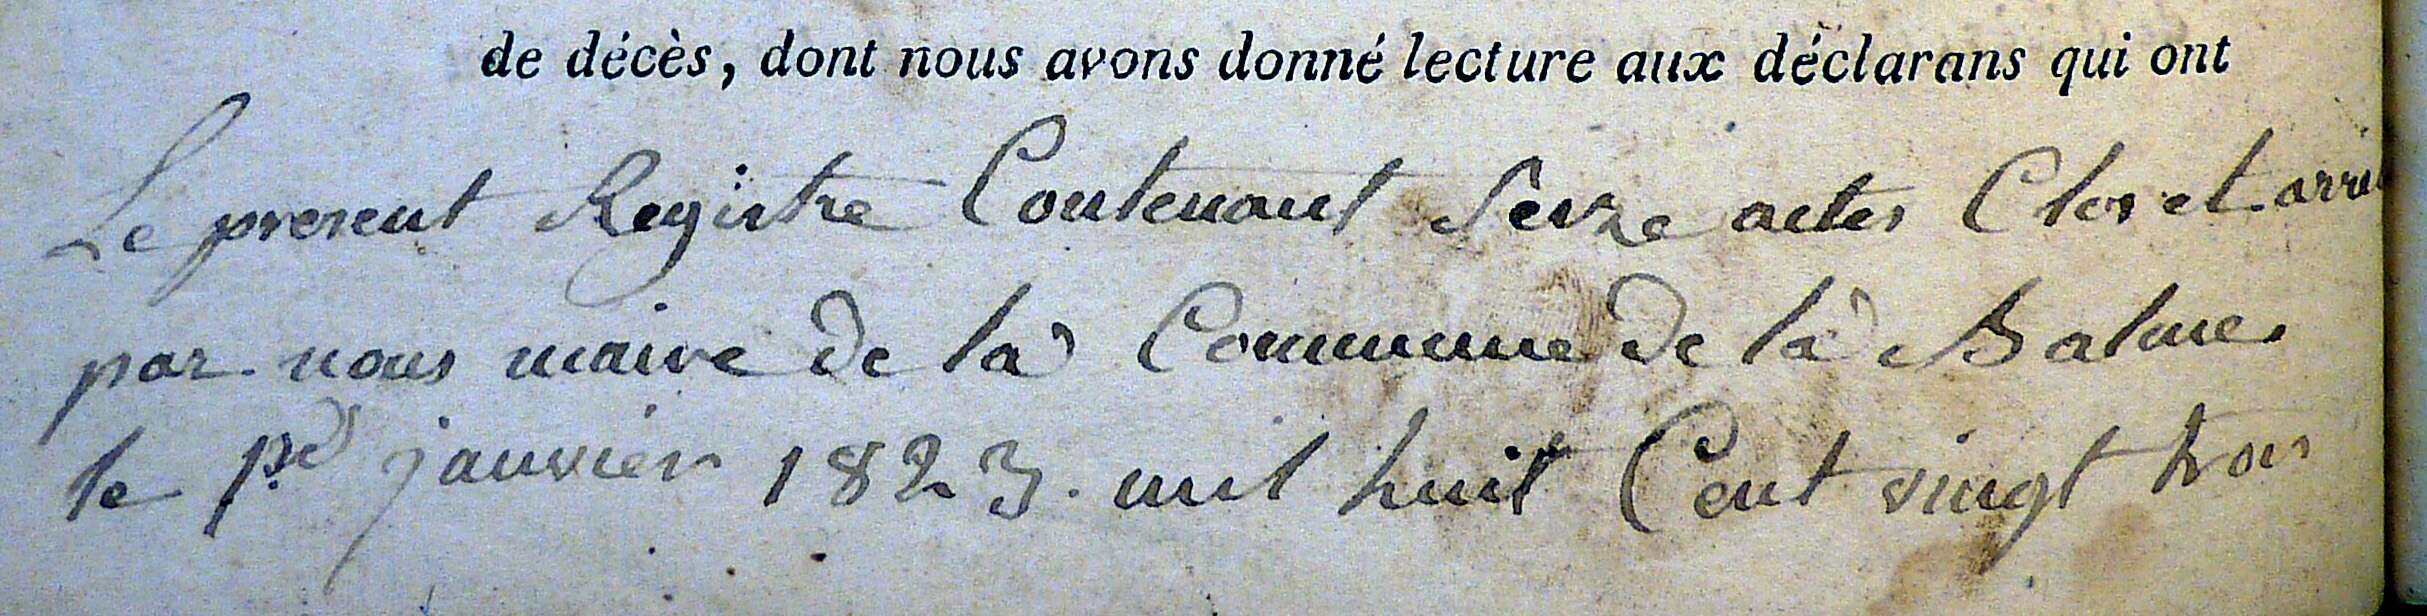 de décès, dont nous avons donné lecture aux déclarans qui ont
Le present Registre Contenant Seize actes Clos et arrêté
par nous maire de la Commune de la Balme
le 1er janvier 1823. mil huit Cent vingt trois